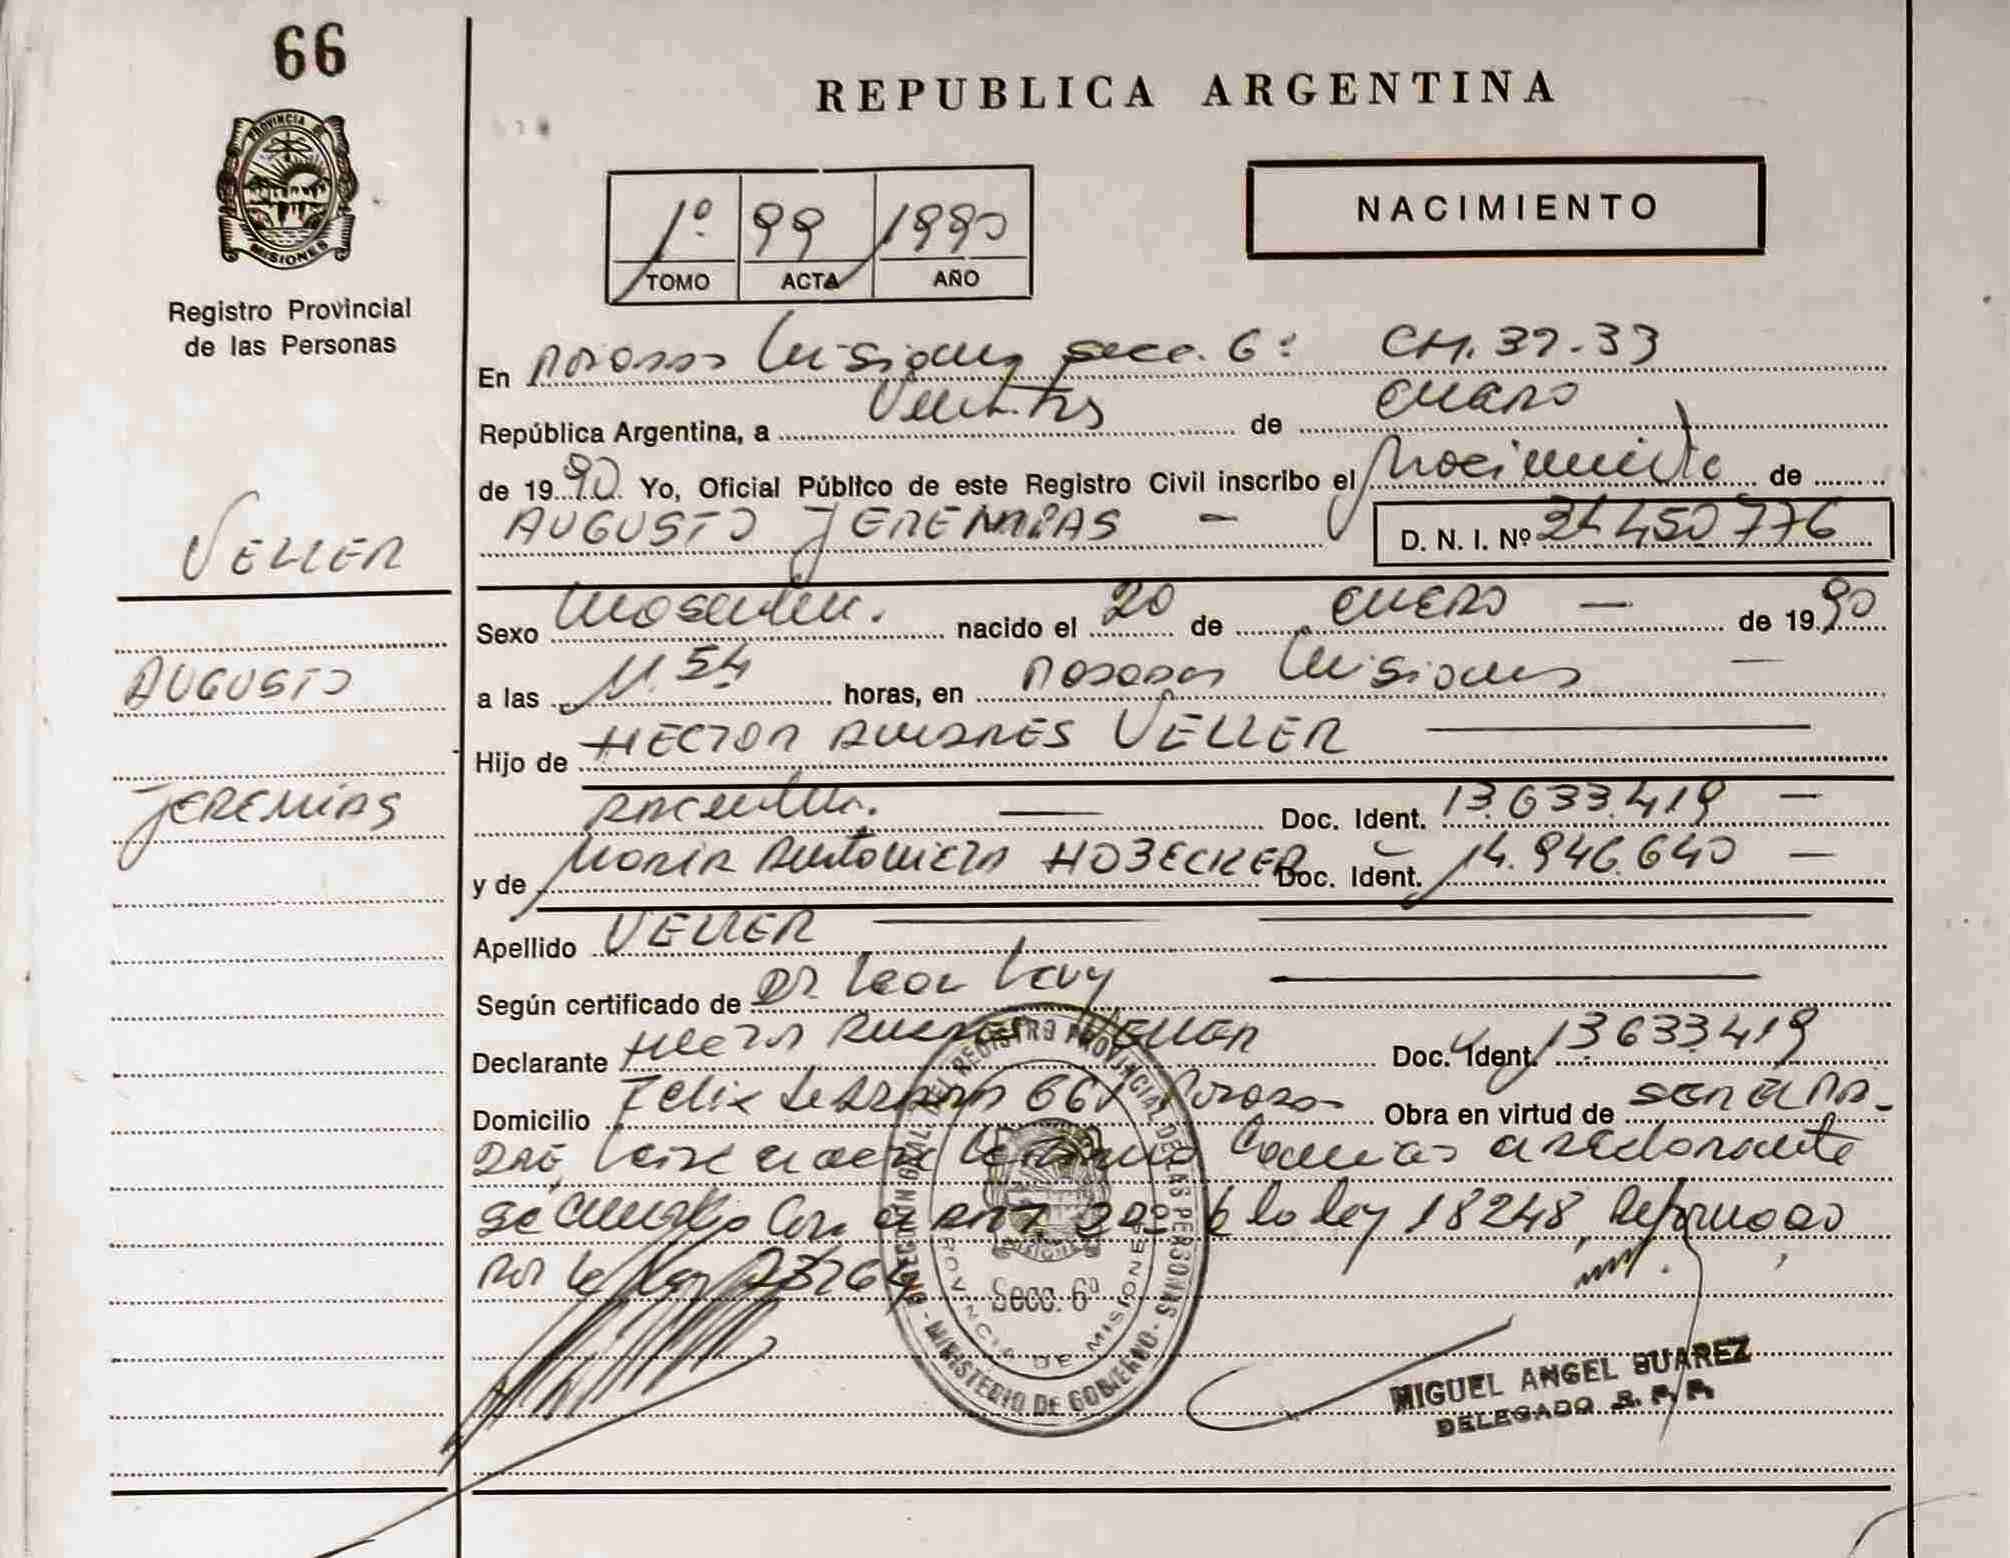 66
REPUBLICA ARGENTINA
PROVINCIA DE
MISIONES
Registro Provincial
de las Personas
1º 99 1990
TOMO ACTA AÑO
NACIMIENTO
En Posadas Misiones Secc. 6ª CH. 32-33
República Argentina, a Veintitres de enero
de 1990 Yo, Oficial Público de este Registro Civil inscribo el Nacimiento de
AUGUSTO JEREMIAS - D. N. I. Nº 34450776
VELLER
AUGUSTO
JEREMIAS
Sexo Masculino. nacido el 20 de ENERO — de 1990
a las 11.54 horas, en Posadas Misiones —
Hijo de HECTOR ANDRES VELLER
Argentino. — Doc. Ident. 13.633.419 —
y de MARIA ANTONIETA HOBECKER Doc. Ident. 14.946.640 —
Apellido VELLER
Según certificado de DR Leon Levy
Declarante Hector Andres VELLER Doc. Ident. 13633419
Domicilio Felix de Azara Posadas Obra en virtud de SER EL PA-
DRE, el declarante
se cumplio Con la ley 18248,
por la Ley 23264
DIRECCION GRAL. DEL REGISTRO PROVINCIAL DE LAS PERSONAS - MINISTERIO DE GOBIERNO
PROVINCIA DE MISIONES
Secc. 6ª
MIGUEL ANGEL SUAREZ
DELEGADO R. P. P.